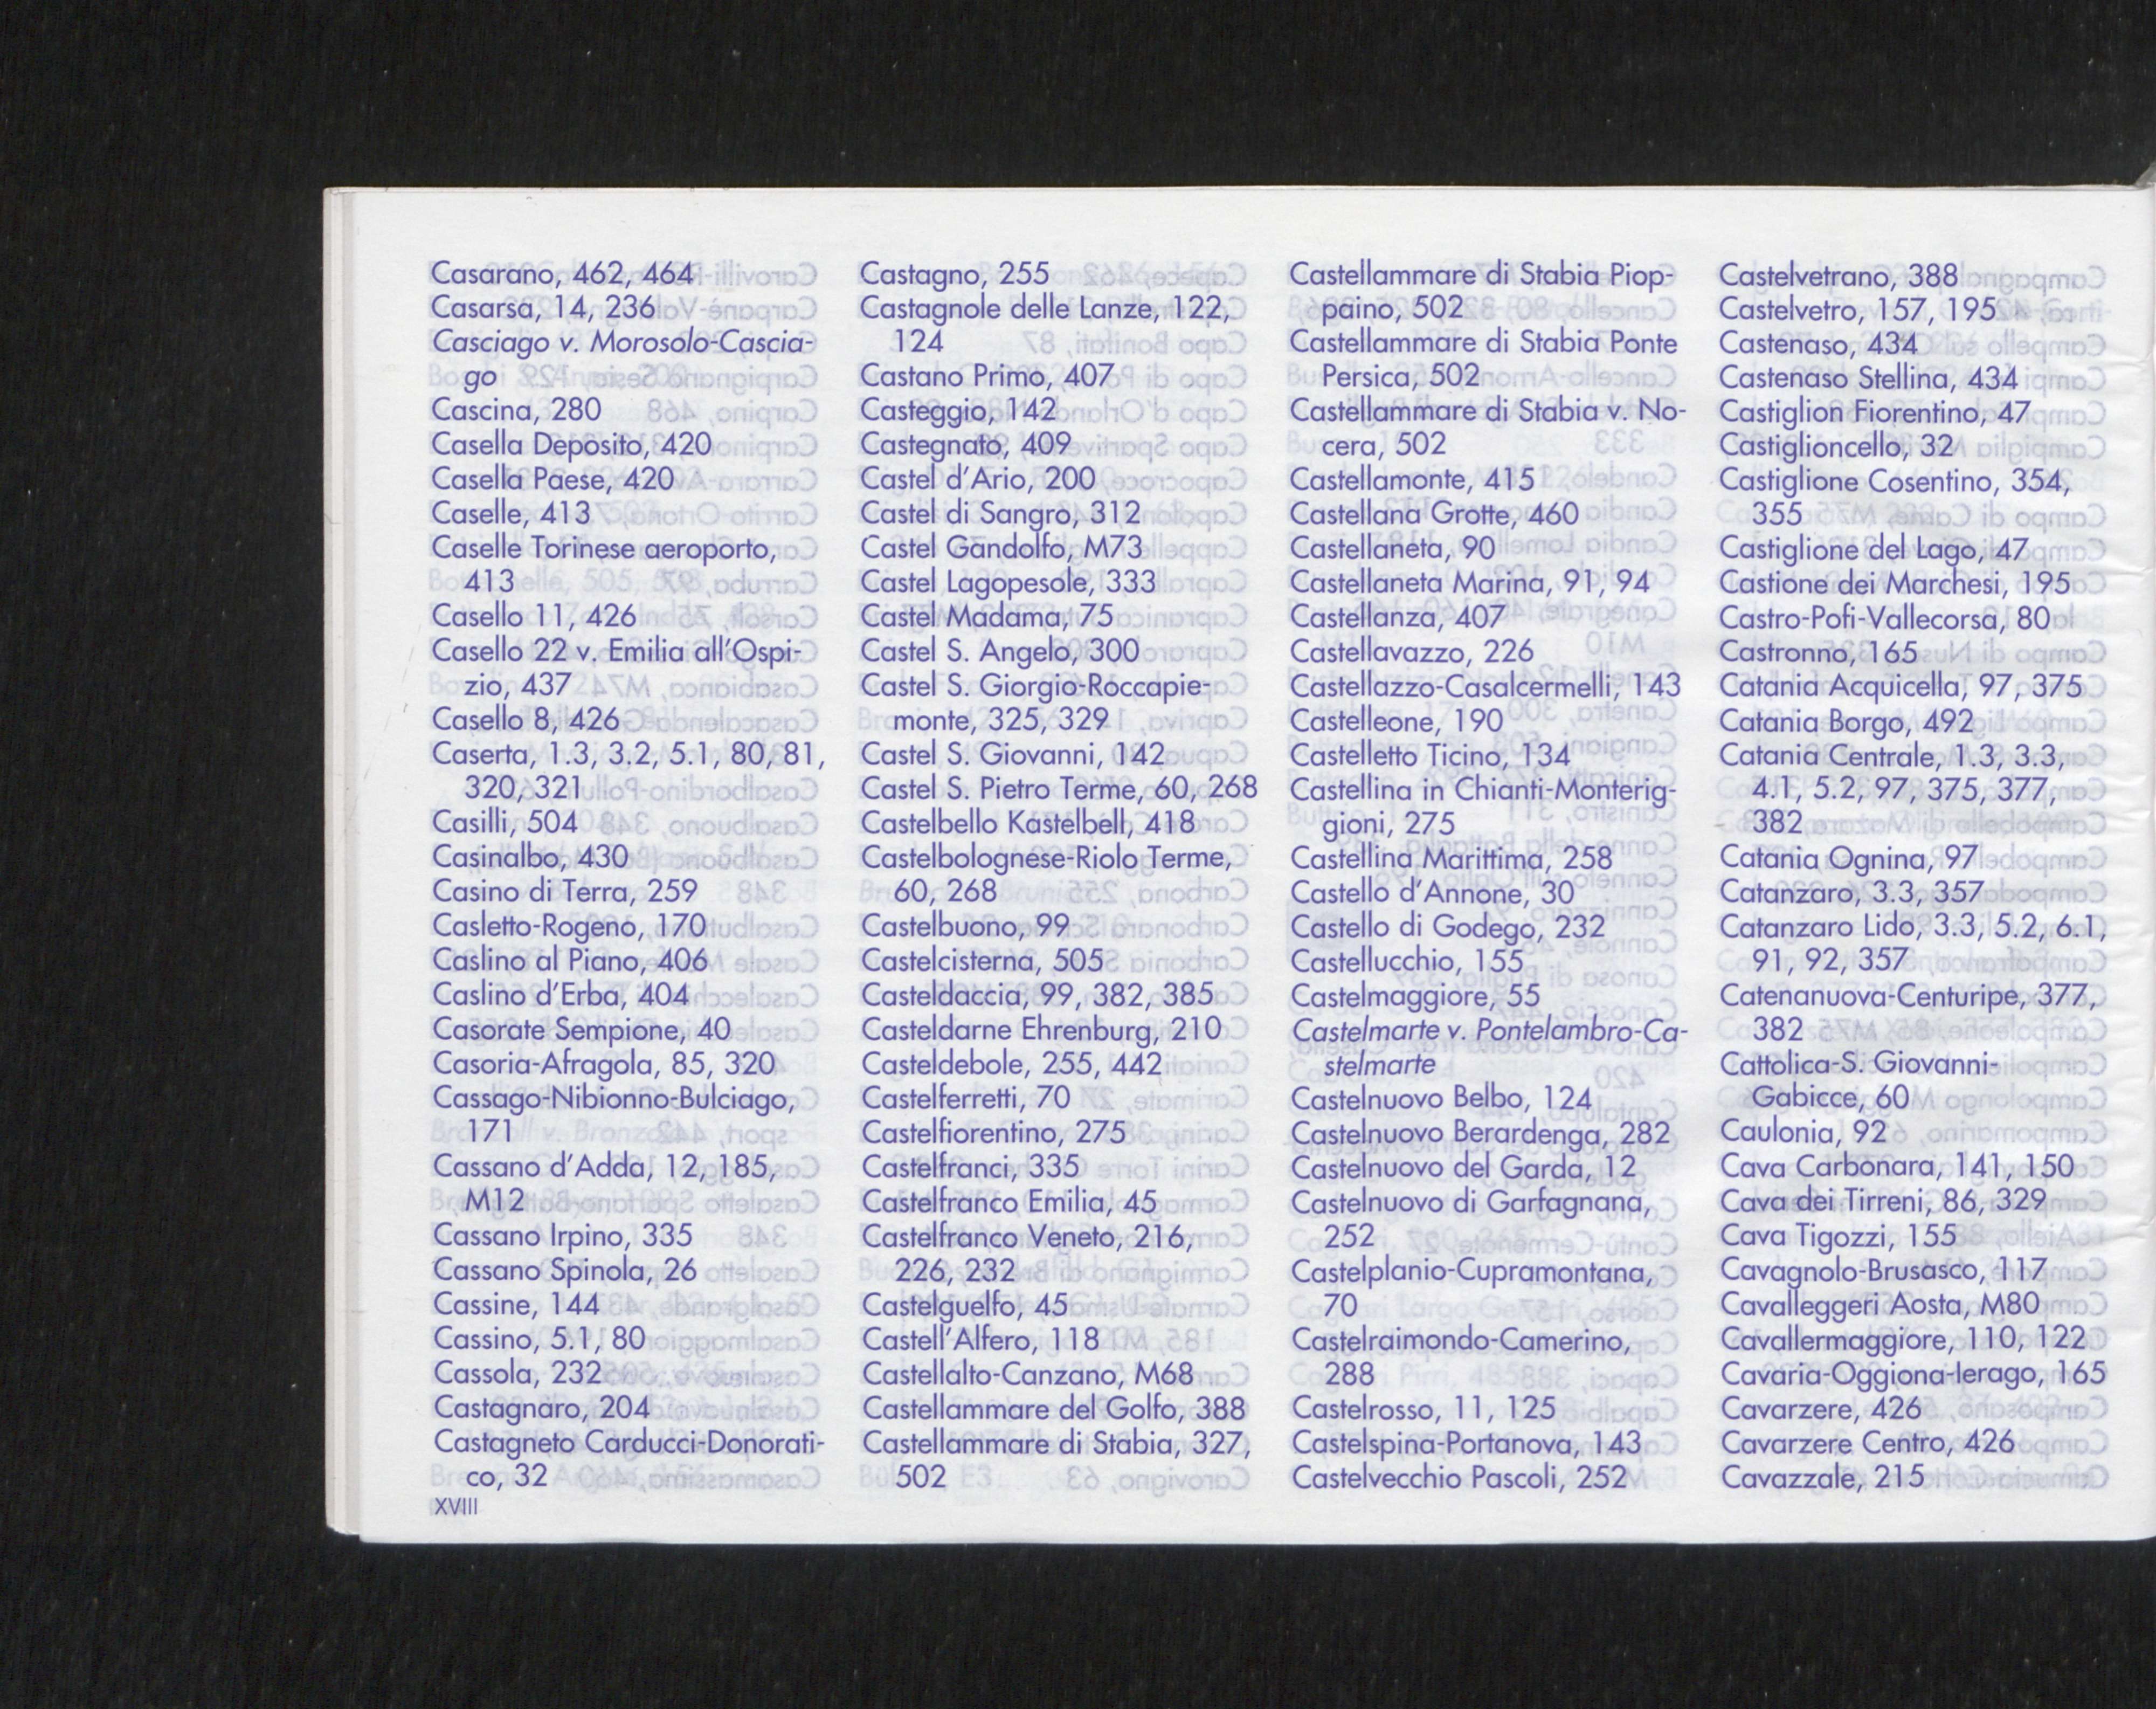 Casarano, 462, 464
Casarsa, 14, 236
Casciago v. Morosolo-Cascia-
go
Cascina, 280
Casella Deposito, 420
Casella Paese, 420
Caselle, 413
Caselle Torinese aeroporto,
413
Casello 11, 426
Casello 22 v. Emilia all'Ospi-
zio, 437
Casello 8, 426
Caserta, 1.3, 3.2, 5.1, 80, 81,
320, 321
Casilli, 504
Casinalbo, 430
Casino di Terra, 259
Casletto-Rogeno, 170
Caslino al Piano, 406
Caslino d'Erba, 404
Casorate Sempione, 40
Casoria-Afragola, 85, 320
Cassago-Nibionno-Bulciago,
171
Cassano d'Adda, 12, 185,
M12
Cassano Irpino, 335
Cassano Spinola, 26
Cassine, 144
Cassino, 5.1, 80
Cassola, 232
Castagnaro, 204
Castagneto Carducci-Donorati-
co, 32
XVIII
Castagno, 255
Castagnole delle Lanze, 122,
124
Castano Primo, 407
Casteggio, 142
Castegnato, 409
Castel d'Ario, 200
Castel di Sangro, 312
Castel Gandolfo, M73
Castel Lagopesole, 333
Castel Madama, 75
Castel S. Angelo, 300
Castel S. Giorgio-Roccapie-
monte, 325, 329
Castel S. Giovanni, 142
Castel S. Pietro Terme, 60, 268
Castelbello Kastelbell, 418
Castelbolognese-Riolo Terme,
60, 268
Castelbuono, 99
Castelcisterna, 505
Casteldaccia, 99, 382, 385
Casteldarne Ehrenburg, 210
Casteldebole, 255, 442
Castelferretti, 70
Castelfiorentino, 275
Castelfranci, 335
Castelfranco Emilia, 45
Castelfranco Veneto, 216,
226, 232
Castelguelfo, 45
Castell'Alfero, 118
Castellalto-Canzano, M68
Castellammare del Golfo, 388
Castellammare di Stabia, 327,
502
Castellammare di Stabia Piop-
paino, 502
Castellammare di Stabia Ponte
Persica, 502
Castellammare di Stabia v. No-
cera, 502
Castellamonte, 415
Castellana Grotte, 460
Castellaneta, 90
Castellaneta Marina, 91, 94
Castellanza, 407
Castellavazzo, 226
Castellazzo-Casalcermelli, 143
Castelleone, 190
Castelletto Ticino, 134
Castellina in Chianti-Monterig-
gioni, 275
Castellina Marittima, 258
Castello d'Annone, 30
Castello di Godego, 232
Castellucchio, 155
Castelmaggiore, 55
Castelmarte v. Pontelambro-Ca-
stelmarte
Castelnuovo Belbo, 124
Castelnuovo Berardenga, 282
Castelnuovo del Garda, 12
Castelnuovo di Garfagnana,
252
Castelplanio-Cupramontana,
70
Castelraimondo-Camerino,
288
Castelrosso, 11, 125
Castelspina-Portanova, 143
Castelvecchio Pascoli, 252
Castelvetrano, 388
Castelvetro, 157, 195
Castenaso, 434
Castenaso Stellina, 434
Castiglion Fiorentino, 47
Castiglioncello, 32
Castiglione Cosentino, 354,
355
Castiglione del Lago, 47
Castione dei Marchesi, 195
Castro-Pofi-Vallecorsa, 80
Castronno, 165
Catania Acquicella, 97, 375
Catania Borgo, 492
Catania Centrale, 1.3, 3.3,
4.1, 5.2, 97, 375, 377,
382
Catania Ognina, 97
Catanzaro, 3.3, 357
Catanzaro Lido, 3.3, 5.2, 6.1,
91, 92, 357
Catenanuova-Centuripe, 377,
382
Cattolica-S. Giovanni-
Gabicce, 60
Caulonia, 92
Cava Carbonara, 141, 150
Cava dei Tirreni, 86, 329
Cava Tigozzi, 155
Cavagnolo-Brusasco, 117
Cavalleggeri Aosta, M80
Cavallermaggiore, 110, 122
Cavaria-Oggiona-Ierago, 165
Cavarzere, 426
Cavarzere Centro, 426
Cavazzale, 215